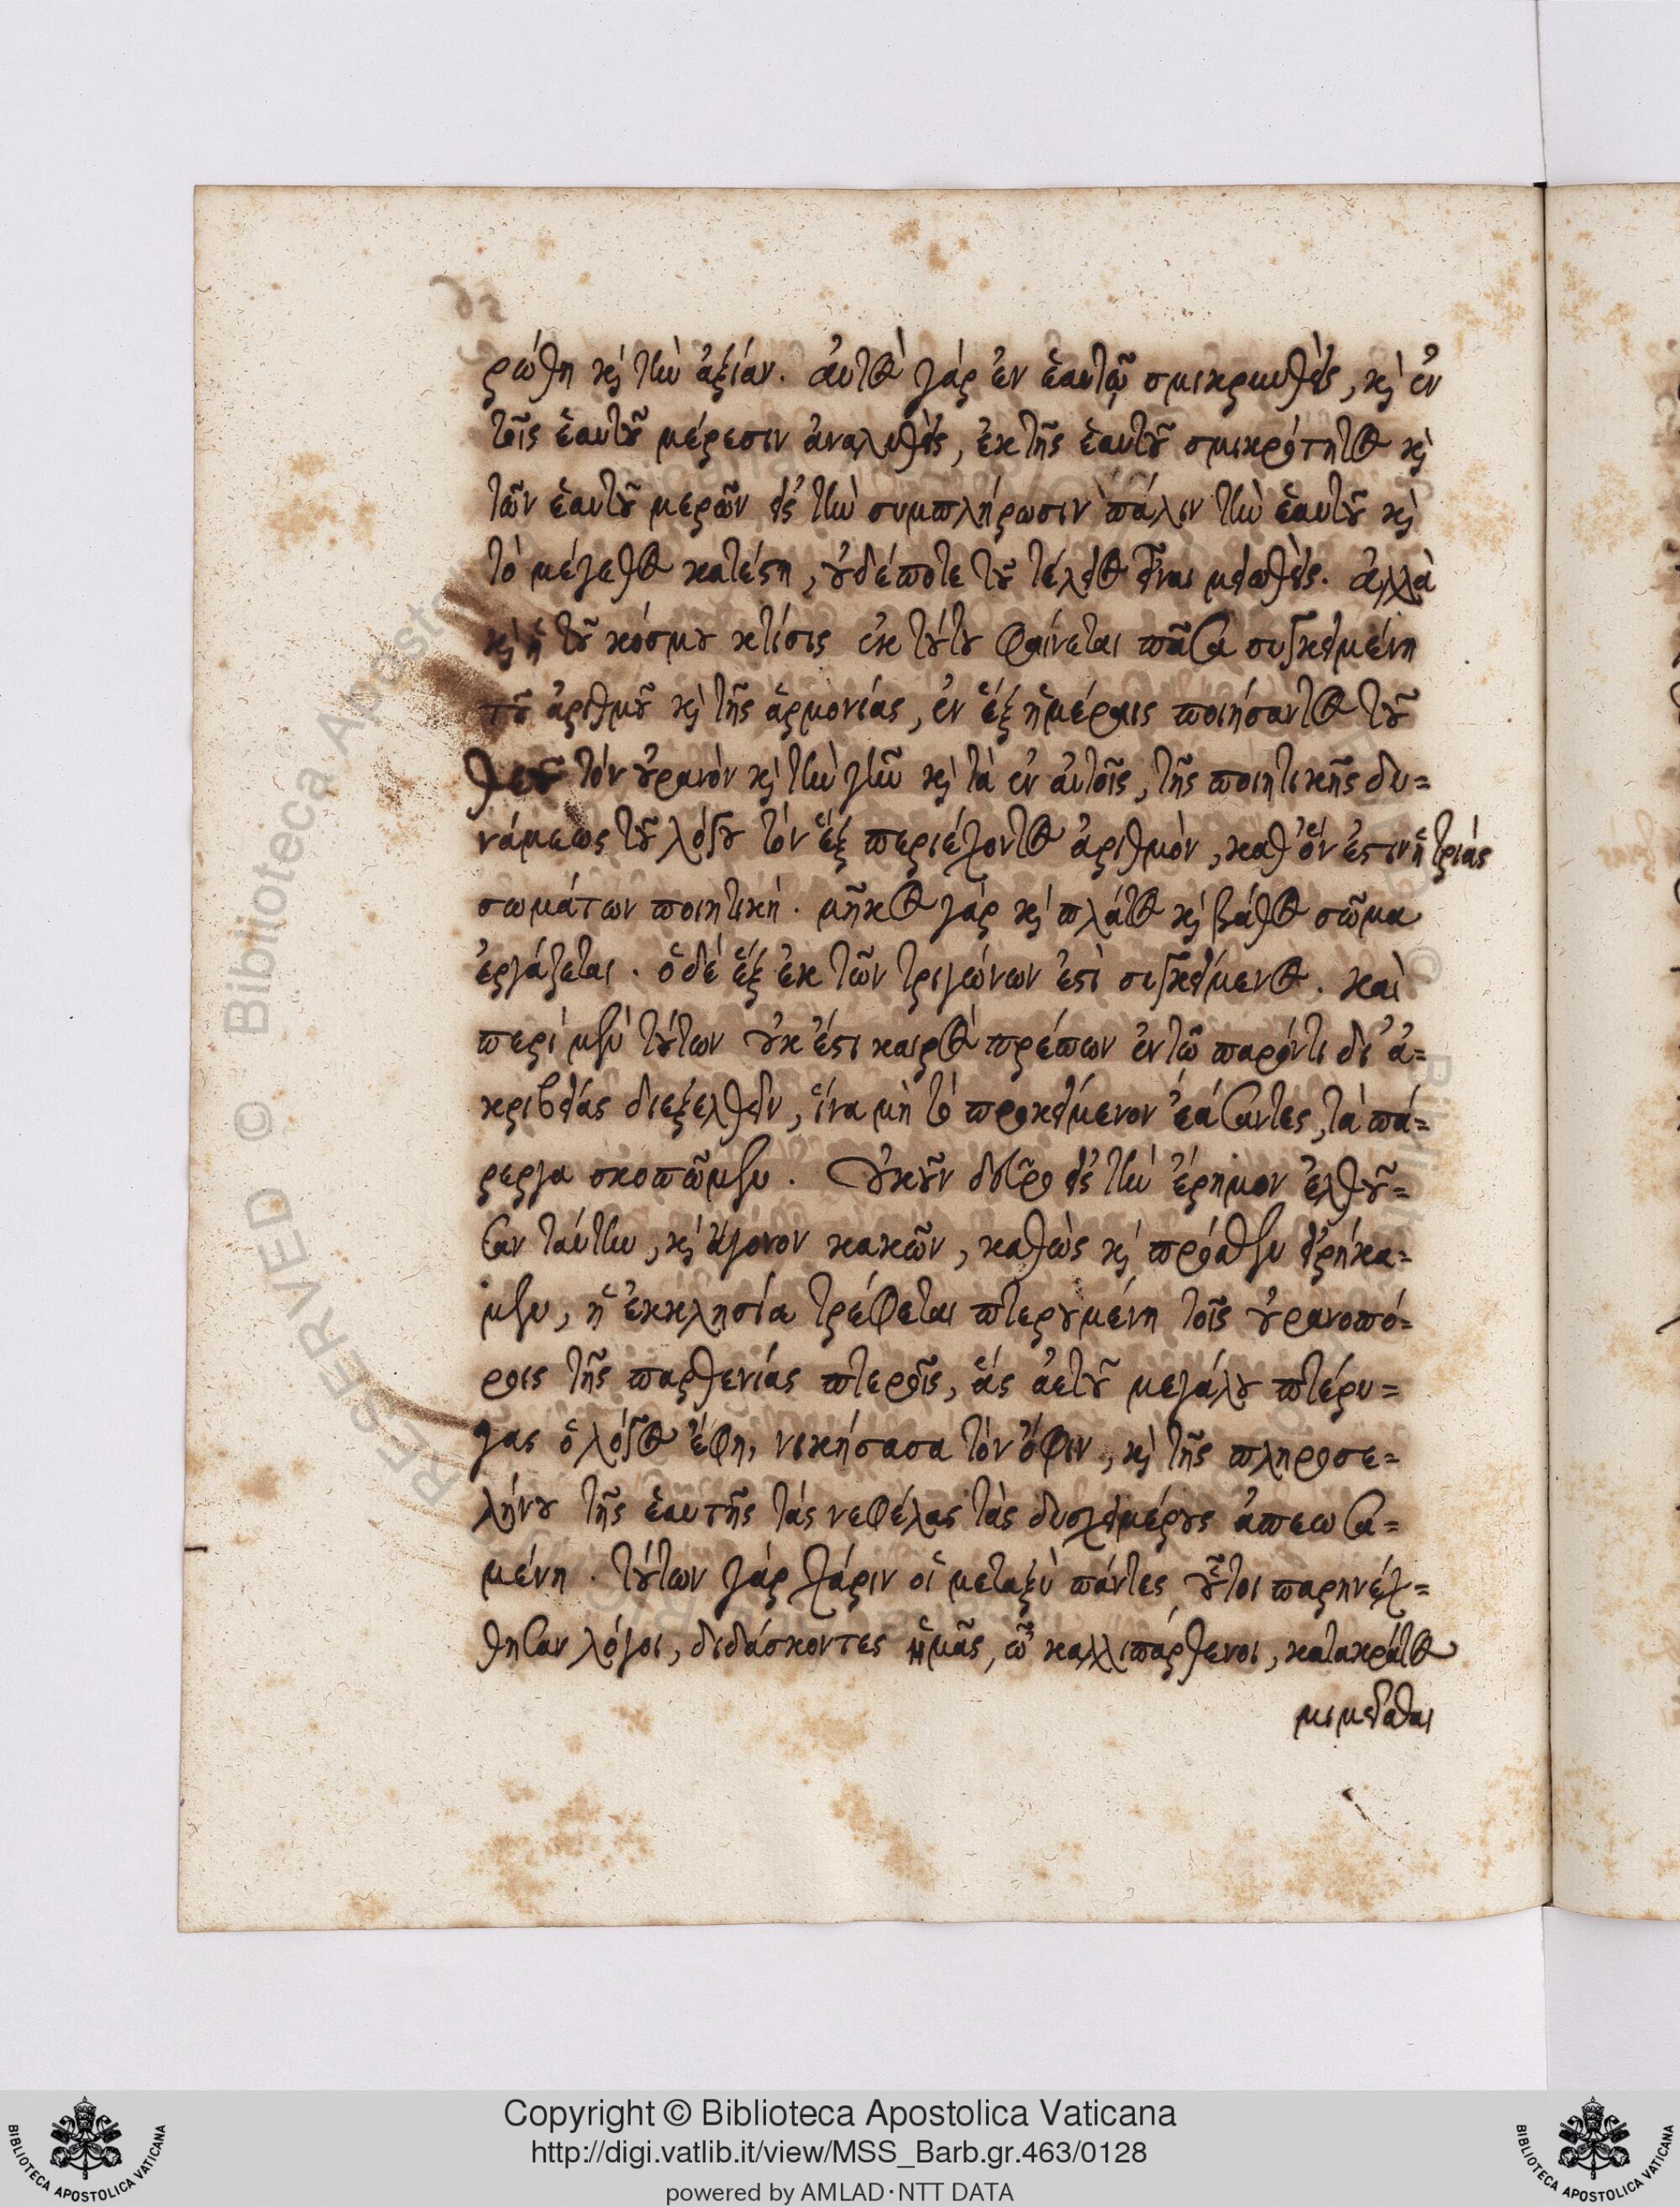 ρώθη καὶ τὴν ἀξίαν. αὐτὸς γάρ ἐν ἑαυτῷ σμικρυνθεὶς, καὶ ἐν
τοῖς ἑαυτοῦ μέρεσιν ἀναλυθεὶς, ἐκ τῆς ἑαυτοῦ σμικρότητος καὶ
τῶν ἑαυτοῦ μερῶν εἰς τὴν συμπλήρωσιν πάλιν τὴν ἑαυτοῦ καὶ
τὸ μέγεθος κατέστη, οὐδέποτε τοῦ τέλειος εἶναι μειωθείς. ἀλλὰ
καὶ ἡ τοῦ κόσμου κτίσις ἐκ τούτου φαίνεται πᾶσα συγκειμένη
τοῦ ἀριθμοῦ καὶ τῆς ἁρμονίας, ἐν ἓξ ἡμέραις ποιήσαντος τοῦ
θεοῦ τὸν οὐρανὸν καὶ τὴν γῆν καὶ τὰ ἐν αὐτοῖς, τῆς ποιητικῆς δυ=
νάμεως τοῦ λόγου τὸν ἓξ περιέχοντος ἀριθμὸν, καθ᾽ ὅν ἐστιν ἡ τριάς
σωμάτων ποιητική. μῆκος γάρ καὶ πλάτος καὶ βάθος σῶμα
ἐργάζεται. ὁ δὲ ἓξ ἐκ τῶν τριγώνων ἐστὶ συγκείμενος. καὶ
περὶ μὲν τούτων οὐκ ἔστι καιρὸς πρέπων ἐν τῷ παρόντι δι᾽ ἀ=
κριβείας διεξελθεῖν, ἵνα μὴ τὸ προκείμενον ἐάσαντες, τὰ πά=
ρεργα σκοπῶμεν. Οὐκοῦν δεῦρο εἰς τὴν ἔρημον ἐλθοῦ=
σαν ταύτην, καὶ ἄγονον κακῶν, καθὼς καὶ πρόσθεν εἰρήκα=
μεν, ἡ ἐκκλησία τρέφεται πτερουμένη τοῖς οὐρανοπό=
ροις τῆς παρθενίας πτεροῖς, ἃς ἀετοῦ μεγάλου πτέρυ=
γας ὁ λόγος ἔφη, νικήσασα τὸν ὄφιν, καὶ τῆς πληροσε=
λήνου τῆς ἑαυτῆς τὰς νεφέλας τὰς δυσχειμέρους ἀπεωσα=
μένη. τούτων γάρ χάριν οἱ μεταξὺ πάντες οὗτοι παρηνέχ=
θησαν λόγοι, διδάσκοντες ἡμᾶς, ὦ καλλιπάρθενοι, κατακράτος
μιμεῖσθαι
RESERVED © Biblioteca Apostolica Vaticana
Copyright © Biblioteca Apostolica Vaticana
http://digi.vatlib.it/view/MSS_Barb.gr.463/0128
powered by AMLAD·NTT DATA
BIBLIOTECA APOSTOLICA VATICANA
BIBLIOTECA APOSTOLICA VATICANA